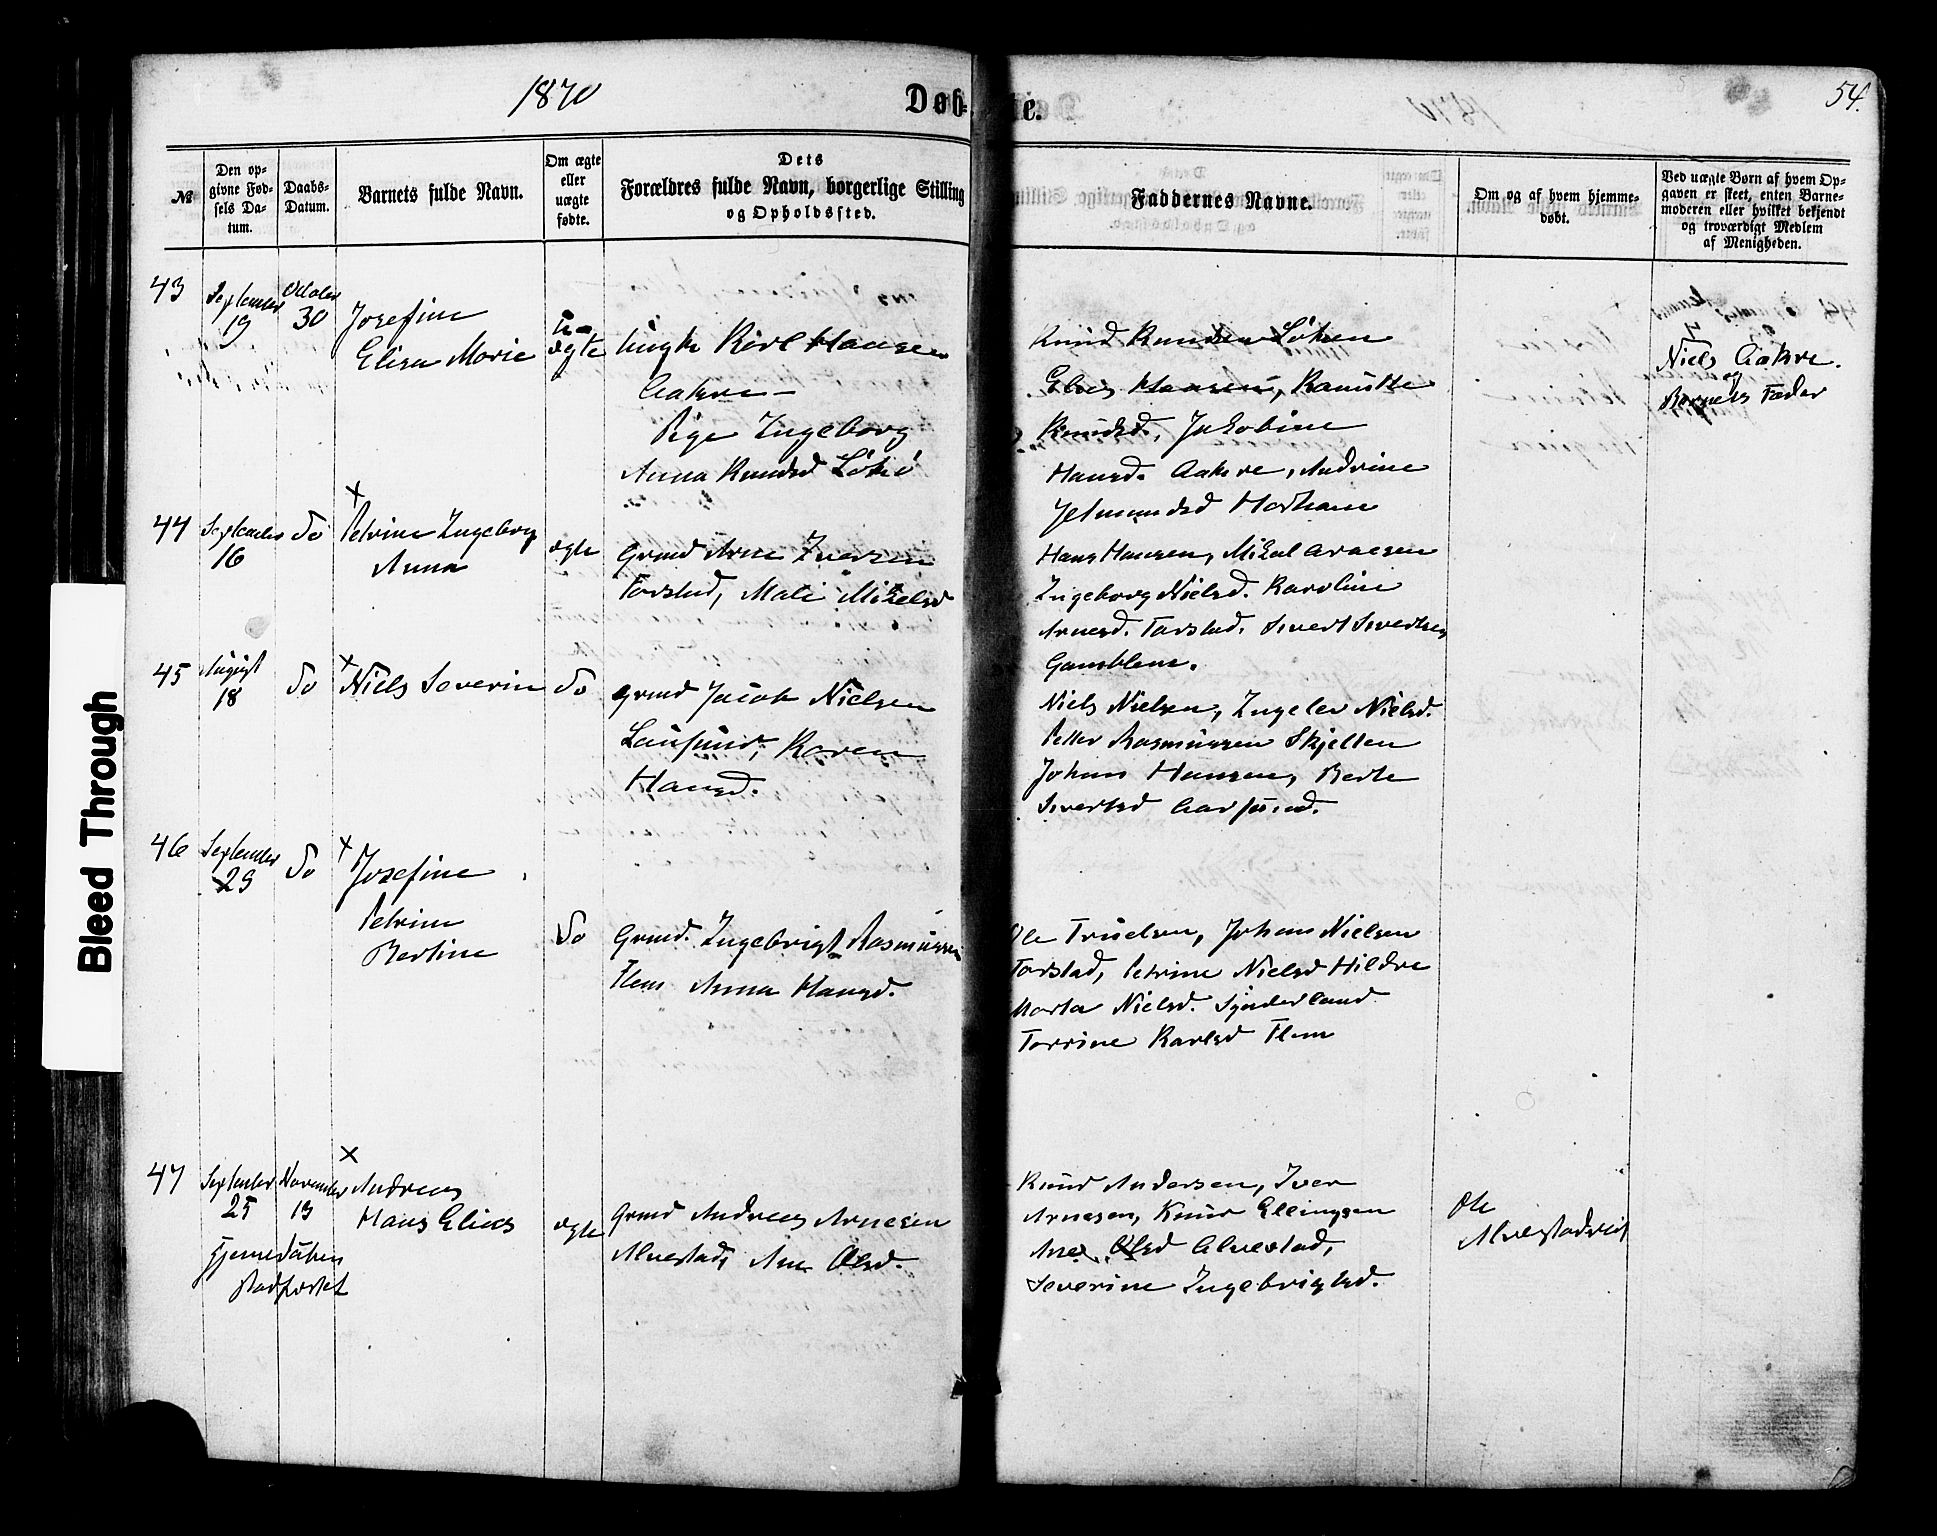 1870
Døb-
te.
54.
№
Den op-
givne Fød-
sels Da-
tum.
Daabs-
Datum.
Barnets fulde Navn.
Om ægte
eller
uægte
fødte.
Dets
Forældres fulde Navn, borgerlige Stilling
og Opholdssted.
Faddernes Navne.
Om og af hvem hjemme-
døbt.
Ved uægte Børn af hvem Op-
gaven er skeet, enten Barne-
moderen eller hvilket bekjendt
og troværdigt Medlem
af Menigheden.
43
September
19
October
30
Josefine
Elisa Marie
u-
ægte
Ungk Karl Hansen
Aakre
Pige Ingeborg
Anna Knudsd
Knud Knudsen Løken
Elias Hansen, Kanutte
Knudsd. Jakobine
Hansd. Aakre, Andrine
Jetmundsd
Niels Aakre.
og
Barnets Fader
44
September
16
do
×
Petrine Ingeborg
Anna
ægte
Grmd Arne Iversen
Farstad, Mali Mikelsd
Hans Hansen, Mikal Arnesen
Ingeborg Nielsd. Karoline
Arnesd. Farstad. Sivert Sivertsen
Gamblem.
45
August
18
do
×
Niels Severin
do
Grmd Jacob Nielsen
Karen
Hansd.
Niels Nielsen, Nielsd.
Petter Rasmussen Skjelten
Johan Hansen, Berte
Sivertsd
46
September
29
do
×
Josefine
Petrine
Bertine
do
Grmd. Ingebrigt Rasmussen
Flem Anna Hansd.
Ole Truelsen, Johan Nielsen
Farstad, Petrine Nielsd Hildre
Marta Nielsd. Synderland
Torrine Karlsd Flem
47
September
25
November
13
×
Andreas
Hans Elias
Hjemedaaben
stadfæstet
ægte
Grmd Andreas Arnesen
Alvestad, Ane Olsd.
Knud Andersen, Iver
Arnesen, Knud Ellingsen
Ane Olsd Alvestad,
Severine Ingebrigtsd.
Ole
Alvestadvig
Bleed Through